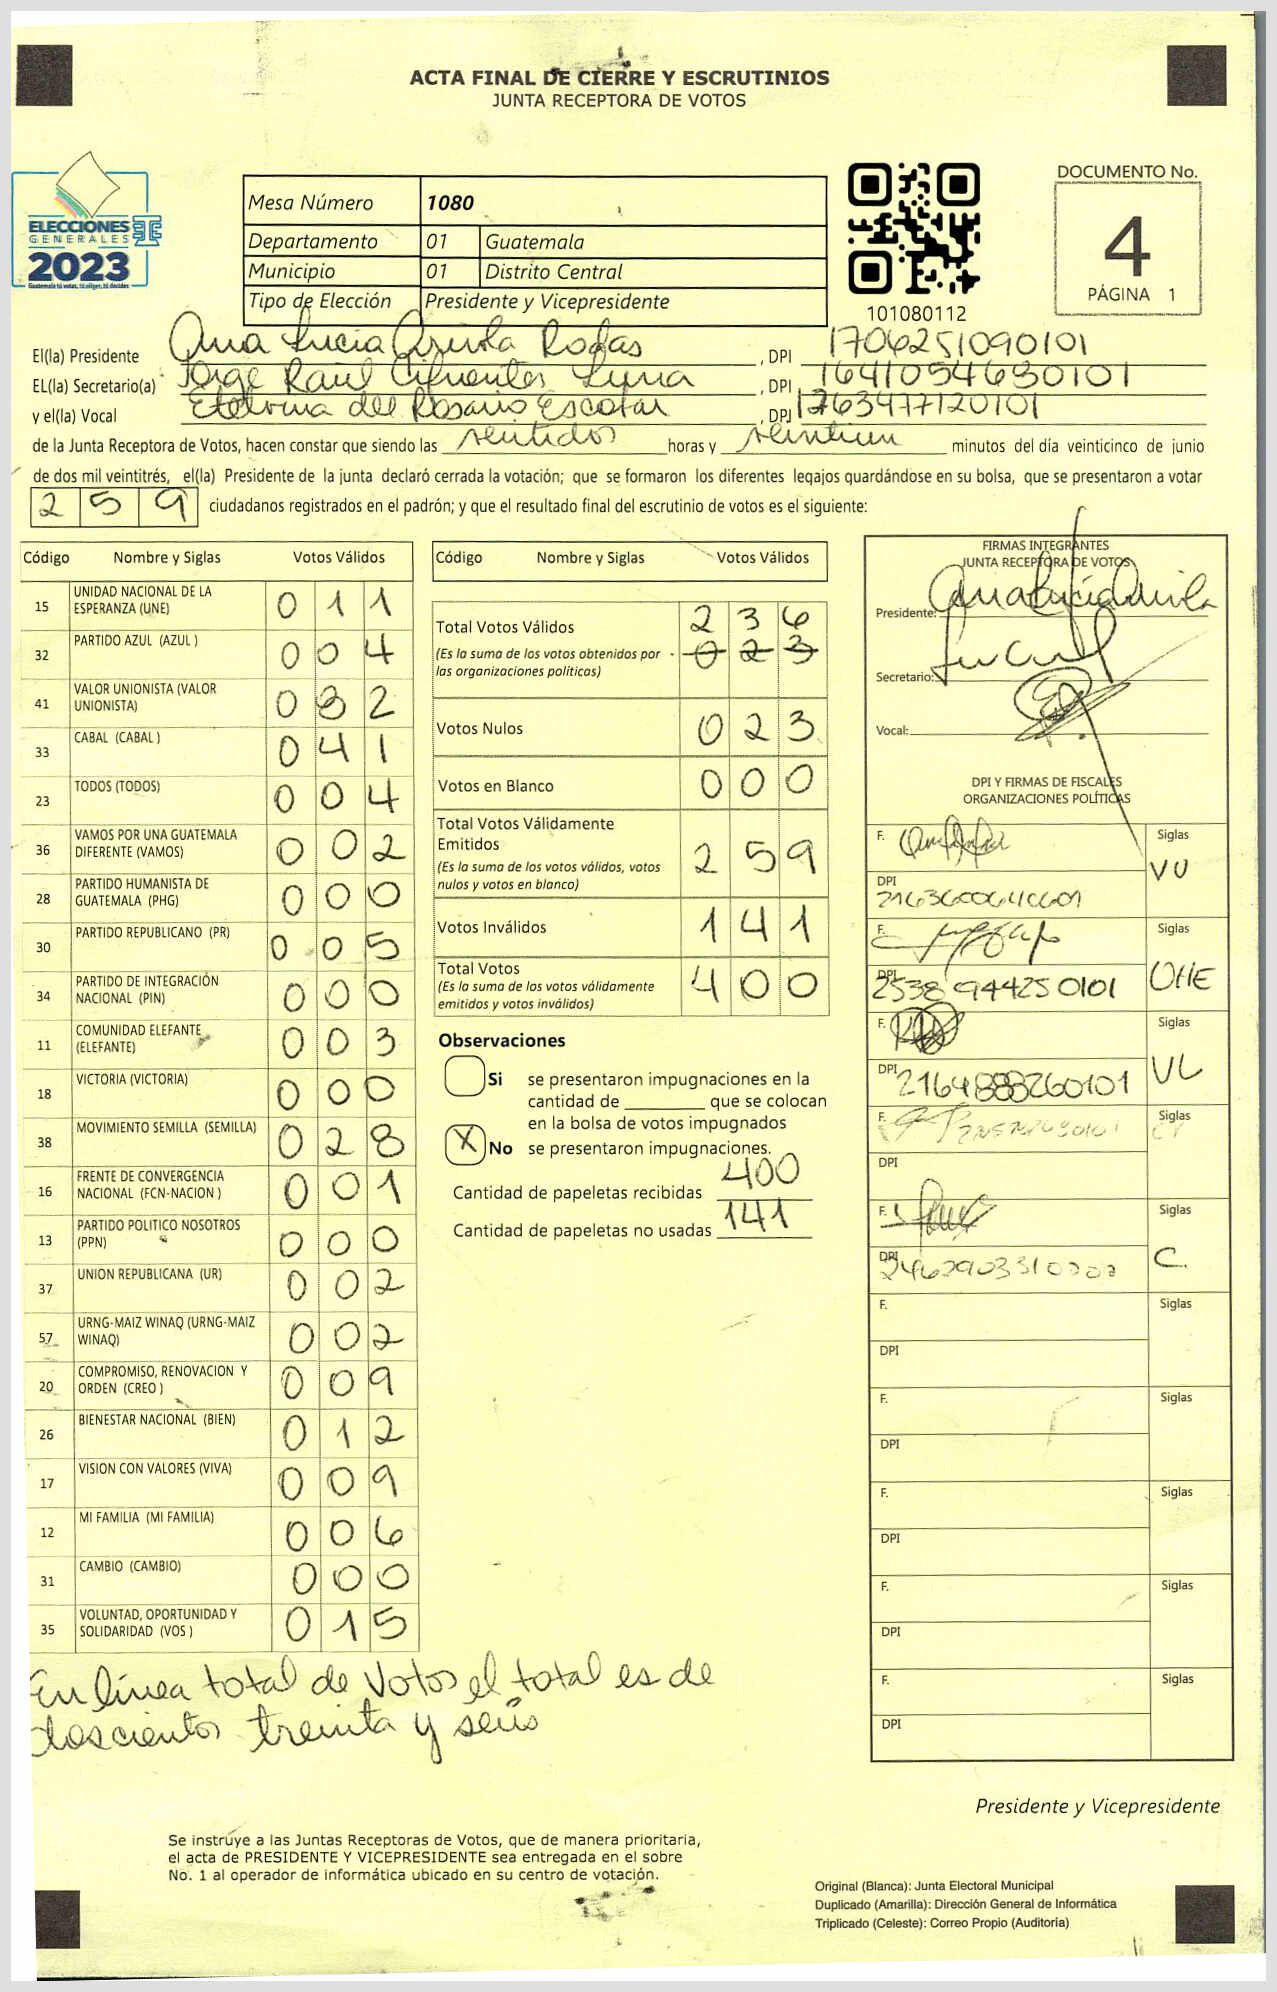 ACTA FINAL DE CIERRE Y ESCRUTINIOS
JUNTA RECEPTORA DE VOTOS
ELECCIONES
GENERALES
2023
Guatemala tú votas, tú eliges, tú decides
Mesa Número 1080
Departamento 01 Guatemala
Municipio 01 Distrito Central
Tipo de Elección Presidente y Vicepresidente
101080112
DOCUMENTO No.
4
PÁGINA 1
El(la) Presidente Ana Lucia Arriola Rodas , DPI 1706251090101
EL(la) Secretario(a) Jorge Raul Cifuentes Luna , DPI 1641054630101
y el(la) Vocal Etelvina del Rosario Escobar , DPI 1763477120101
de la Junta Receptora de Votos, hacen constar que siendo las horas y minutos del día veinticinco de junio
de dos mil veintitrés, el(la) Presidente de la junta declaró cerrada la votación; que se formaron los diferentes legajos guardándose en su bolsa, que se presentaron a votar
259 ciudadanos registrados en el padrón; y que el resultado final del escrutinio de votos es el siguiente:
Código Nombre y Siglas Votos Válidos
15 UNIDAD NACIONAL DE LA ESPERANZA (UNE) 011
32 PARTIDO AZUL (AZUL ) 004
41 VALOR UNIONISTA (VALOR UNIONISTA) 032
33 CABAL (CABAL ) 041
23 TODOS (TODOS) 004
36 VAMOS POR UNA GUATEMALA DIFERENTE (VAMOS) 002
28 PARTIDO HUMANISTA DE GUATEMALA (PHG) 000
30 PARTIDO REPUBLICANO (PR) 005
34 PARTIDO DE INTEGRACIÓN NACIONAL (PIN) 000
11 COMUNIDAD ELEFANTE (ELEFANTE) 003
18 VICTORIA (VICTORIA) 000
38 MOVIMIENTO SEMILLA (SEMILLA) 028
16 FRENTE DE CONVERGENCIA NACIONAL (FCN-NACION ) 001
13 PARTIDO POLITICO NOSOTROS (PPN) 000
37 UNION REPUBLICANA (UR) 002
57 URNG-MAIZ WINAQ (URNG-MAIZ WINAQ) 002
20 COMPROMISO, RENOVACION Y ORDEN (CREO ) 009
26 BIENESTAR NACIONAL (BIEN) 012
17 VISION CON VALORES (VIVA) 009
12 MI FAMILIA (MI FAMILIA) 006
31 CAMBIO (CAMBIO) 000
35 VOLUNTAD, OPORTUNIDAD Y SOLIDARIDAD (VOS ) 015
En línea total de votos el total es de
doscientos treinta y seis
Código Nombre y Siglas Votos Válidos
Total Votos Válidos 236
(Es la suma de los votos obtenidos por las organizaciones políticas) 023
Votos Nulos 023
Votos en Blanco 000
Total Votos Válidamente Emitidos 259
(Es la suma de los votos válidos, votos nulos y votos en blanco)
Votos Inválidos 141
Total Votos 400
(Es la suma de los votos válidamente emitidos y votos inválidos)
Observaciones
Si se presentaron impugnaciones en la
cantidad de ________ que se colocan
en la bolsa de votos impugnados
X No se presentaron impugnaciones.
Cantidad de papeletas recibidas 400
Cantidad de papeletas no usadas 141
FIRMAS INTEGRANTES
JUNTA RECEPTORA DE VOTOS
Presidente:
Secretario:
Vocal:
DPI Y FIRMAS DE FISCALES
ORGANIZACIONES POLÍTICAS
F. Siglas VU
DPI
F. Siglas UNE
DPI 2538944250101
F. Siglas VL
DPI 2164888260101
F. Siglas
DPI
F. Siglas C.
DPI
F. Siglas
DPI
F. Siglas
DPI
F. Siglas
DPI
F. Siglas
DPI
F. Siglas
DPI
Presidente y Vicepresidente
Se instruye a las Juntas Receptoras de Votos, que de manera prioritaria,
el acta de PRESIDENTE Y VICEPRESIDENTE sea entregada en el sobre
No. 1 al operador de informática ubicado en su centro de votación.
Original (Blanca): Junta Electoral Municipal
Duplicado (Amarilla): Dirección General de Informática
Triplicado (Celeste): Correo Propio (Auditoría)